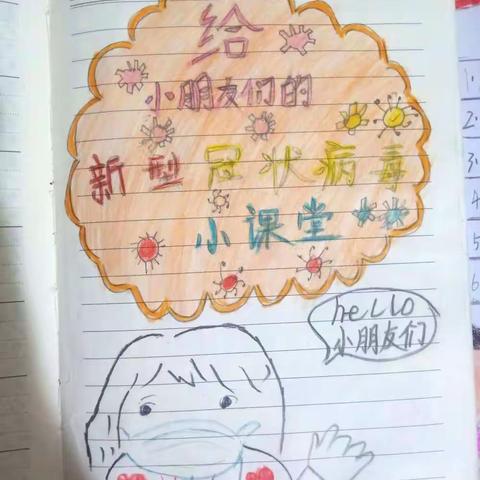 给
小朋友们的
新型冠状病毒
小课堂
hello
小朋友们
1.
2.
3.
4
5
6